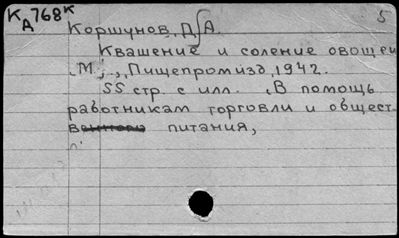 К 768к
Д
5
Коршунов, Д А.
Квашение и соление овощей
М., Пищепромизд, 1942.
55 стр. с илл. В помощь
работникам торговли и общест
питания,